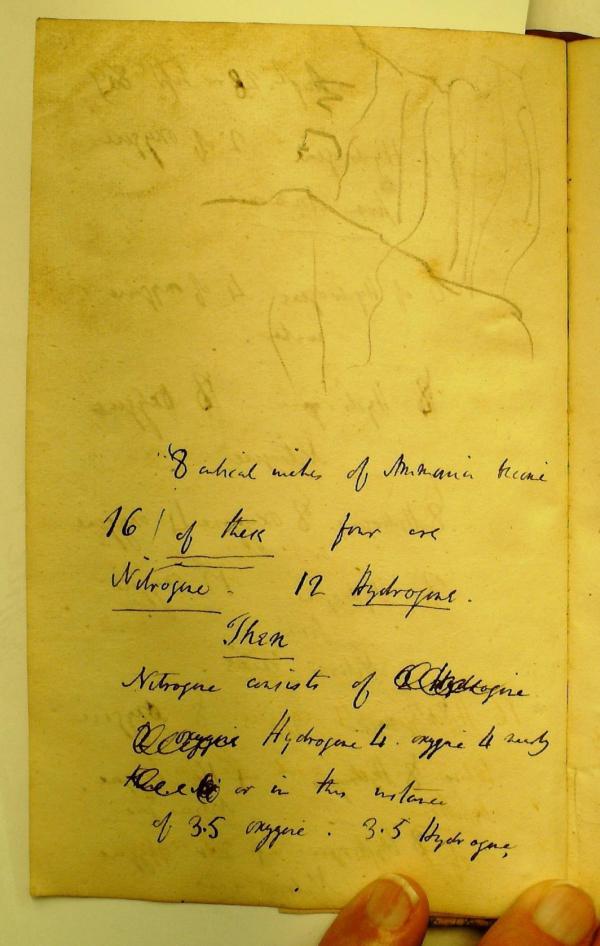 8 cubical inches of Ammonia became
16 / of these four are
Nitrogene - 12 Hydrogene.
Then
Nitrogene consists of Hydrogene
oxygene Hydrogene 4. oxygene 4 nearly
or in this instance
of 3.5 oxygene. 3.5 Hydrogene,